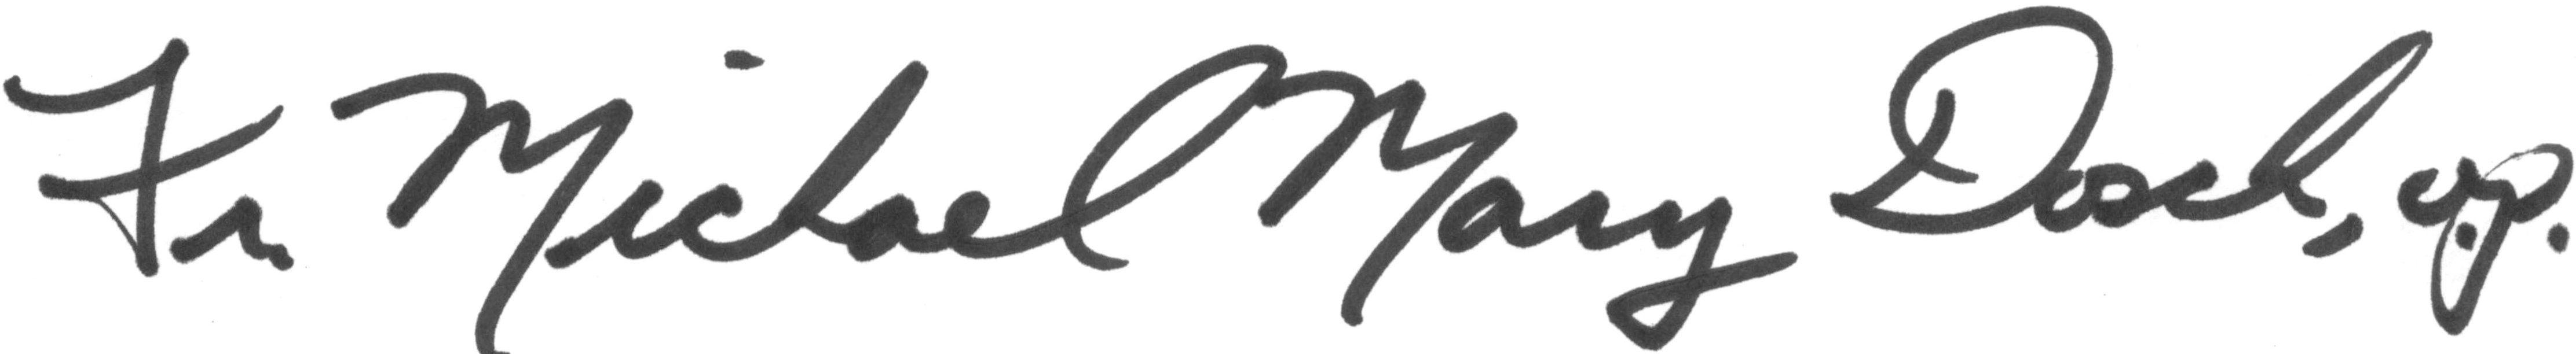 Fr. Michael Mary Dosch, o.p.